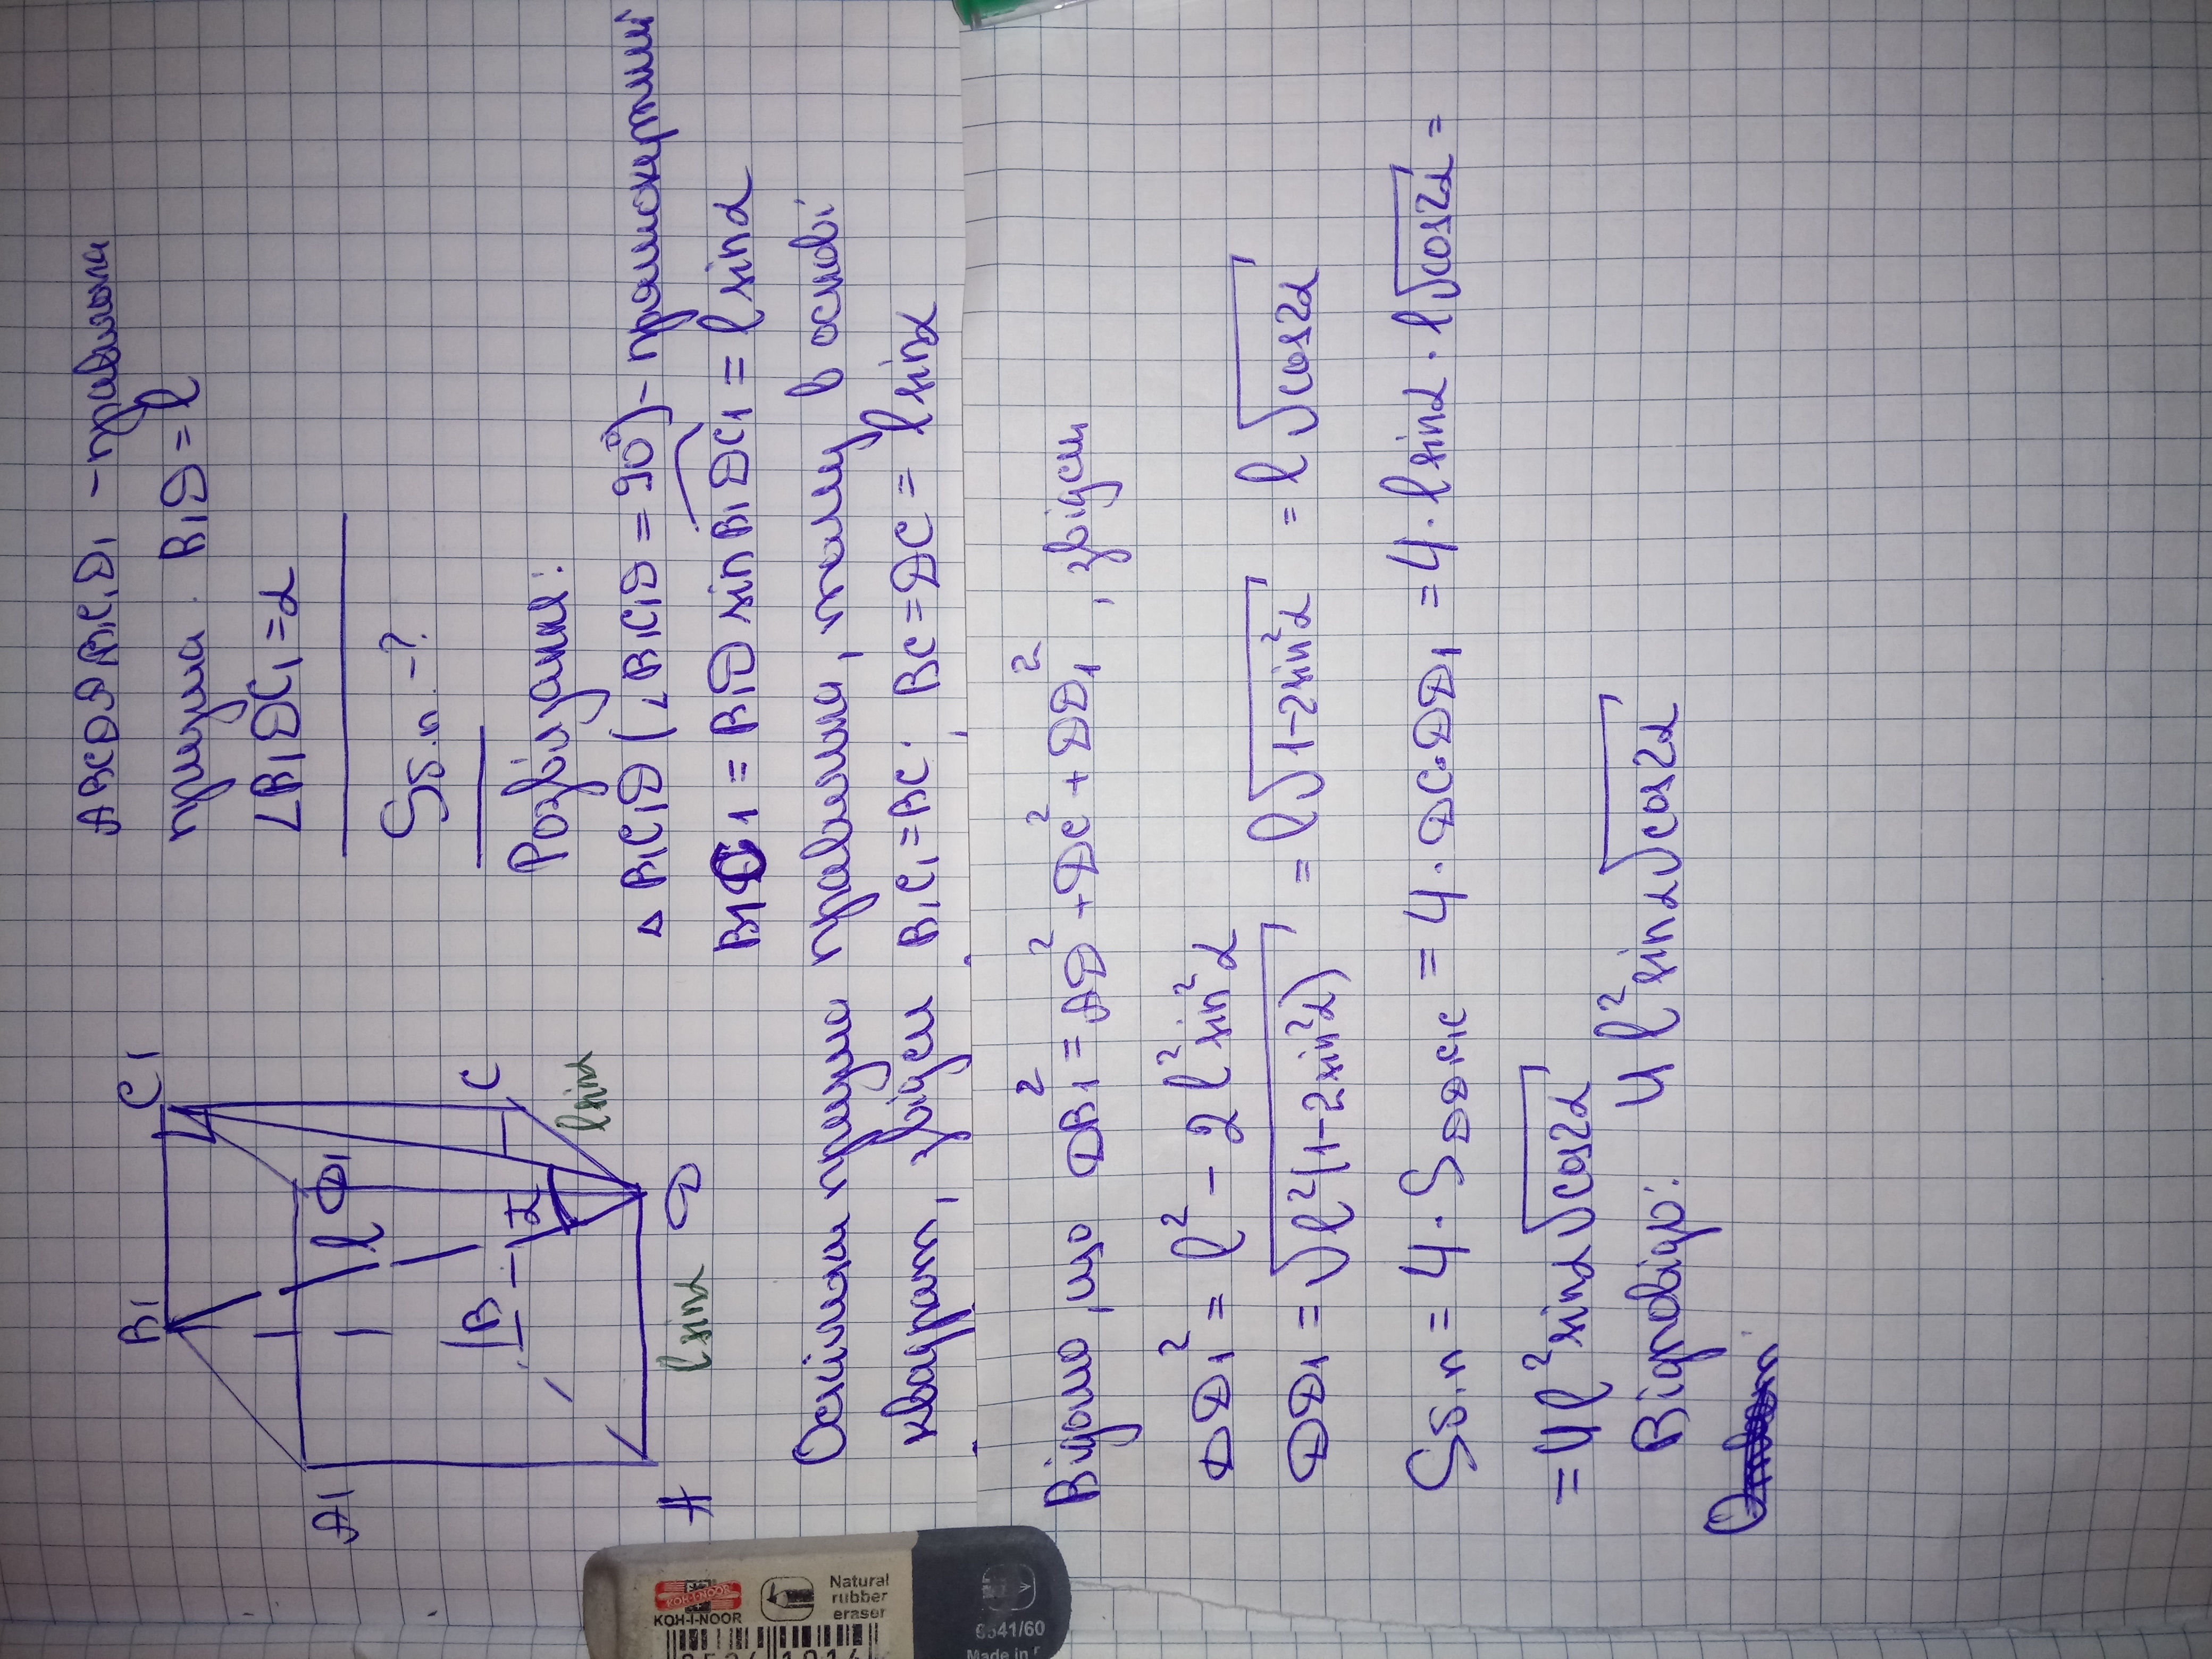 ABCDA₁B₁C₁D₁ - правильна
призма. B₁D = l
∠B₁DC₁ = α
Sб.п. - ?
Розв'язання:
△ B₁C₁D (∠B₁C₁D = 90°) - прямокутний
B₁C₁ = B₁D sin B₁DC₁ = l sinα
B₁
C₁
A₁
D₁
l
B
α
C
A
D
l sinα
l sinα
Оскільки призма правильна, тому в основі
квадрат, звідси B₁C₁ = BC; BC = DC = l sinα
Відомо, що DB₁² = AD² + DC² + DD₁², звідси
DD₁² = l² - 2l² sin²α
DD₁ = √l²(1-2sin²α) = l√1-2sin²α = l√cos2α
Sб.п = 4 · S DD₁C₁C = 4 · DC · DD₁ = 4 · l sinα · l√cos2α =
= 4l² sinα√cos2α
Відповідь: 4l² sinα√cos2α
KOH-I-NOOR
Natural
rubber
eraser
6541/60
Made in